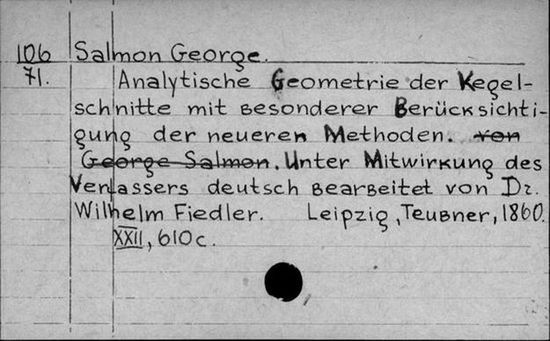 106 Salmon George.
71. Analytische Geometrie der Kegel-
schnitte mit besonderer Berücksichti-
gung der neueren Methoden. von
George Salmon. Unter Mitwirkung des
Verfassers deutsch bearbeitet von Dr.
Wilhelm Fiedler. Leipzig, Teubner, 1860.
XXII, 610 c.